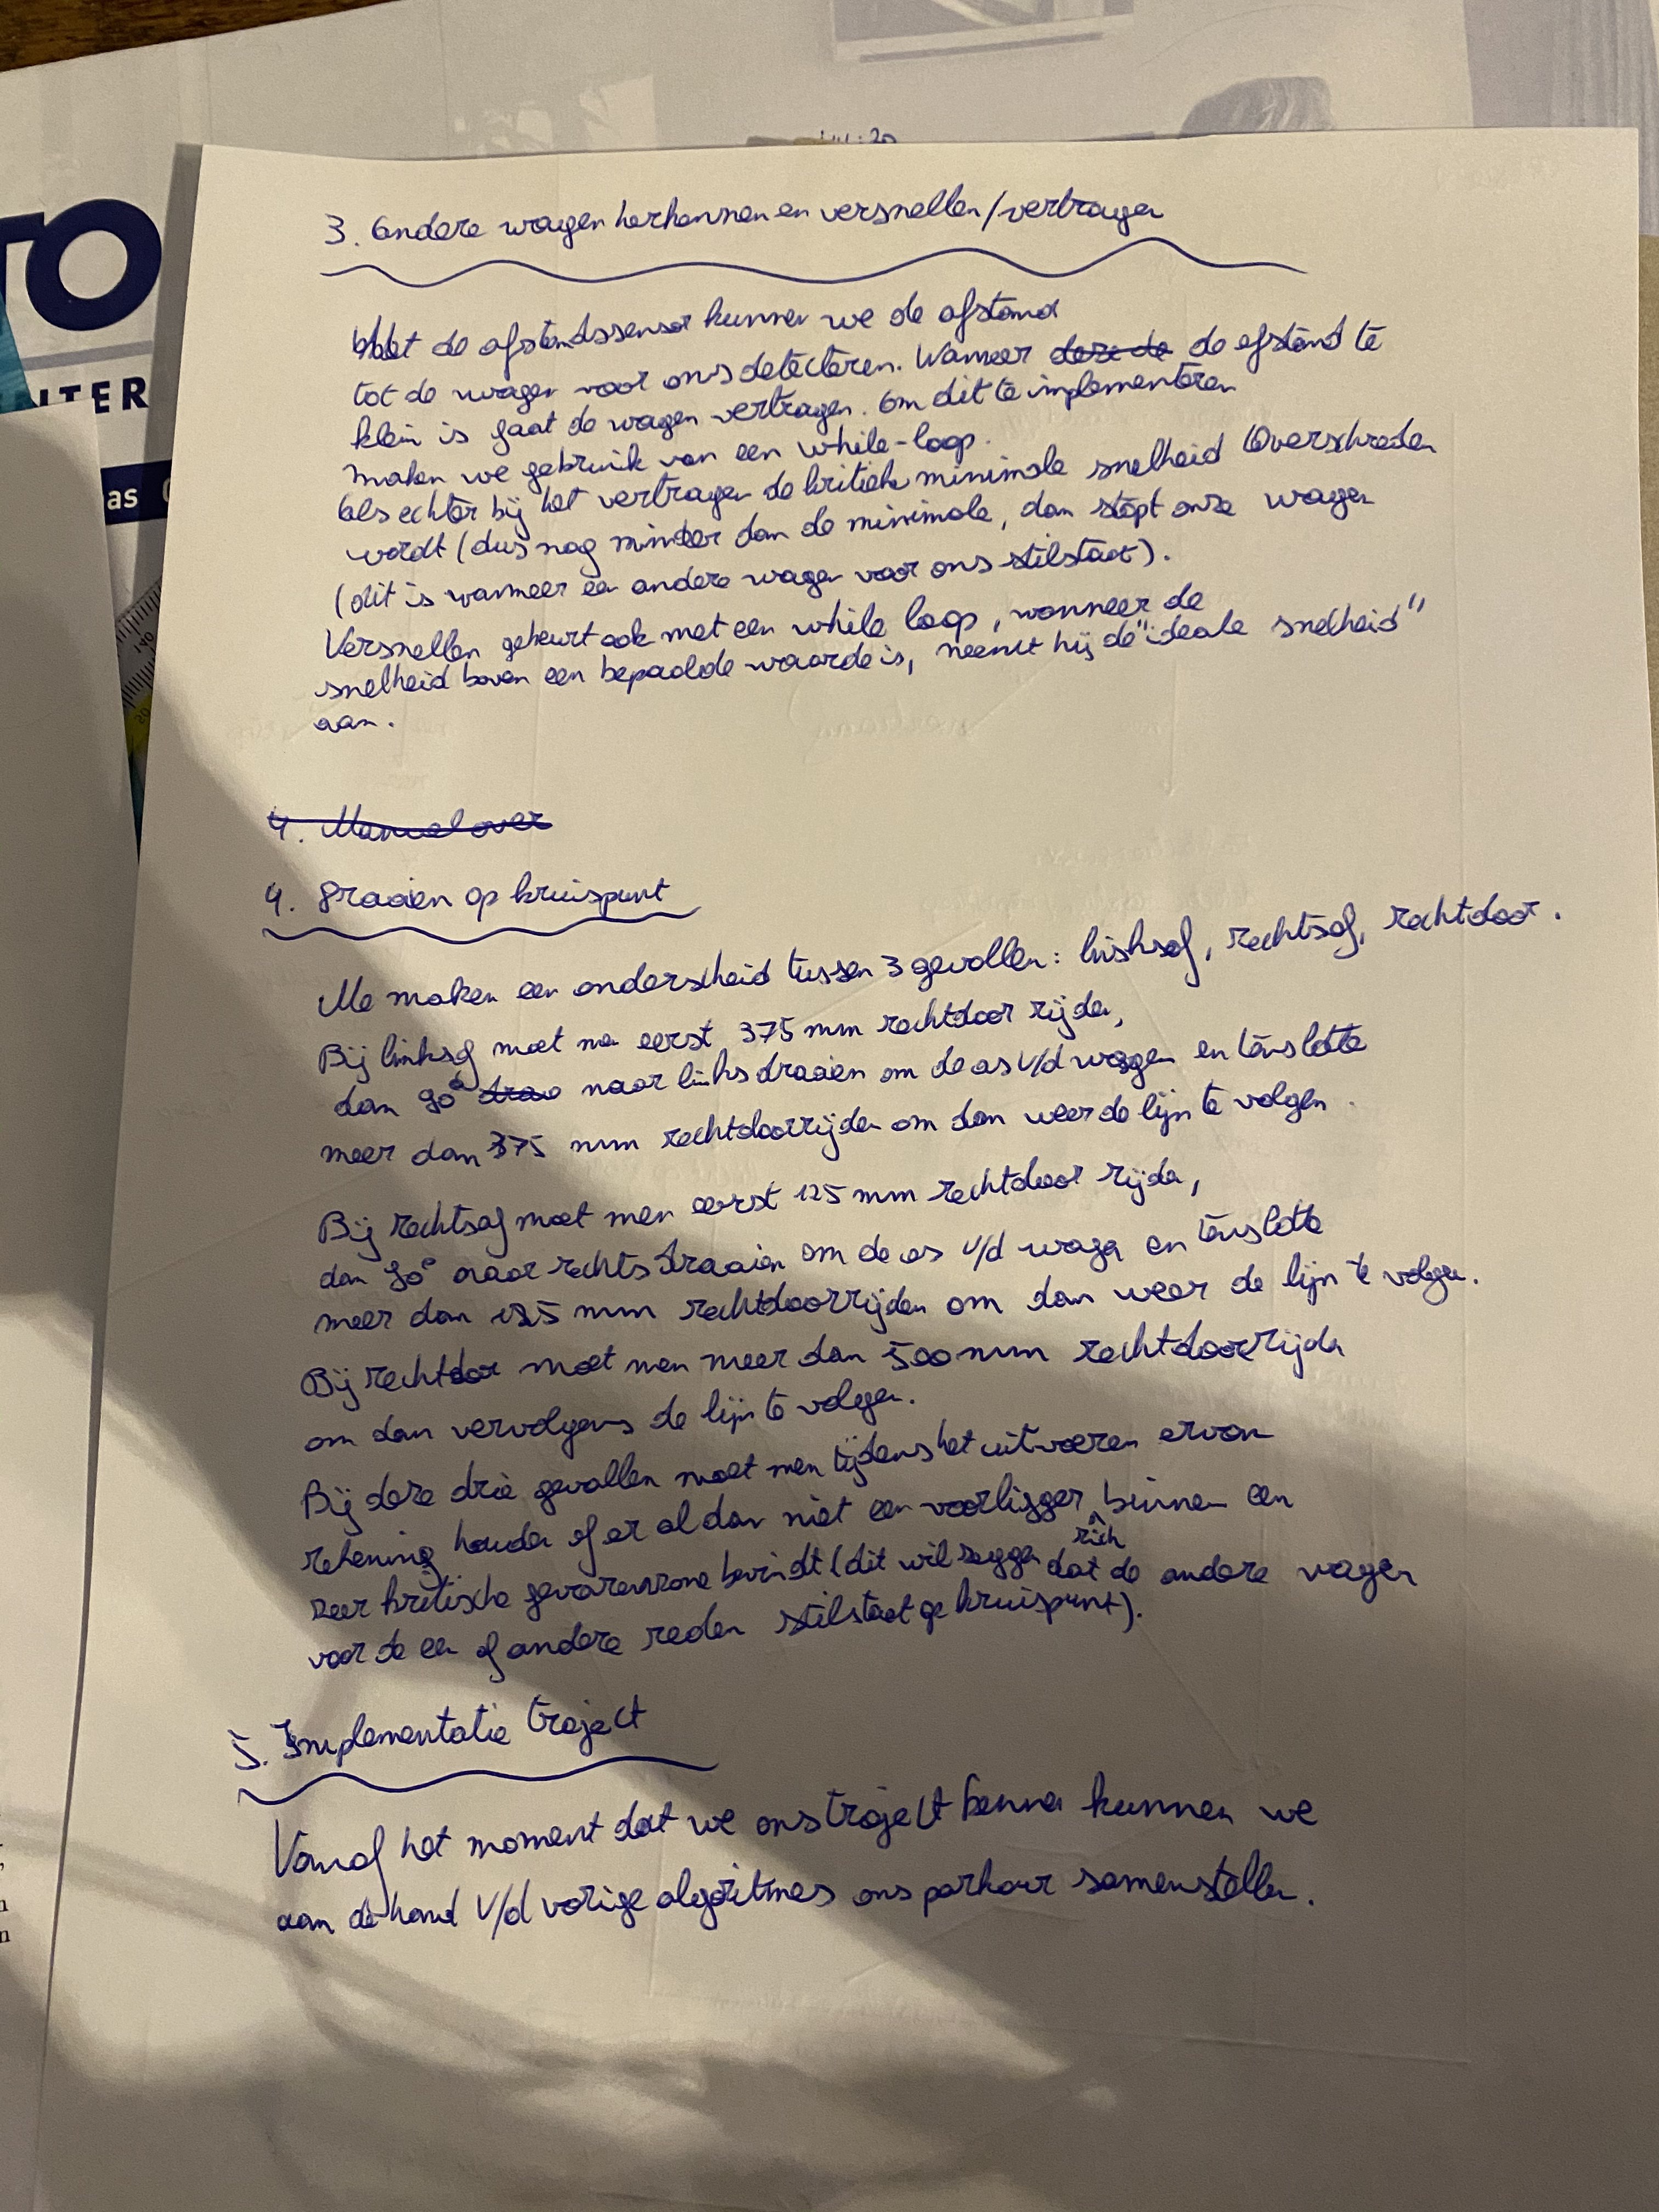 TO
ITER
as
3. Andere wagen herkennen en versnellen/vertragen
Met de afstandssensor kunnen we de afstand
tot de wagen voor ons detecteren. Wanneer deze de de afstand te
klein is gaat de wagen vertragen. Om dit te implementeren
maken we gebruik van een while-loop.
Als echter bij het vertragen de kritiek minimale snelheid overschreden
wordt (dus nog minder dan de minimale, dan stopt onze wagen
(dit is wanneer een andere wagen voor ons stilstaat).
Versnellen gebeurt ook met een while loop, wanneer de
snelheid boven een bepaalde waarde is, neemt hij de "ideale snelheid"
aan.
4. Manual over
4. Draaien op kruispunt
We maken een onderscheid tussen 3 gevallen: linksaf, rechtsaf, rechtdoor.
Bij linksaf moet men eerst 375 mm rechtdoor rijden,
dan 90° draa naar links draaien om de as v/d wagen en tenslotte
meer dan 375 mm rechtdoorrijden om dan weer de lijn te volgen.
Bij rechtsaf moet men eerst 125 mm rechtdoor rijden,
dan 90° naar rechts draaien om de as v/d wagen en tenslotte
meer dan 125 mm rechtdoorrijden om dan weer de lijn te volgen.
Bij rechtdoor moet men meer dan 500 mm rechtdoorrijden
om dan vervolgens de lijn te volgen.
Bij deze drie gevallen moet men tijdens het uitvoeren ervan
rekening houden of er al dan niet een voorligger zich binnen een
zeer kritische gevarenzone bevindt (dit wil zeggen dat de andere wagen
voor de een of andere reden stilstaat op kruispunt).
5. Implementatie traject
Vanaf het moment dat we ons traject kennen kunnen we
aan de hand v/d vorige algoritmes ons parkour samenstellen.